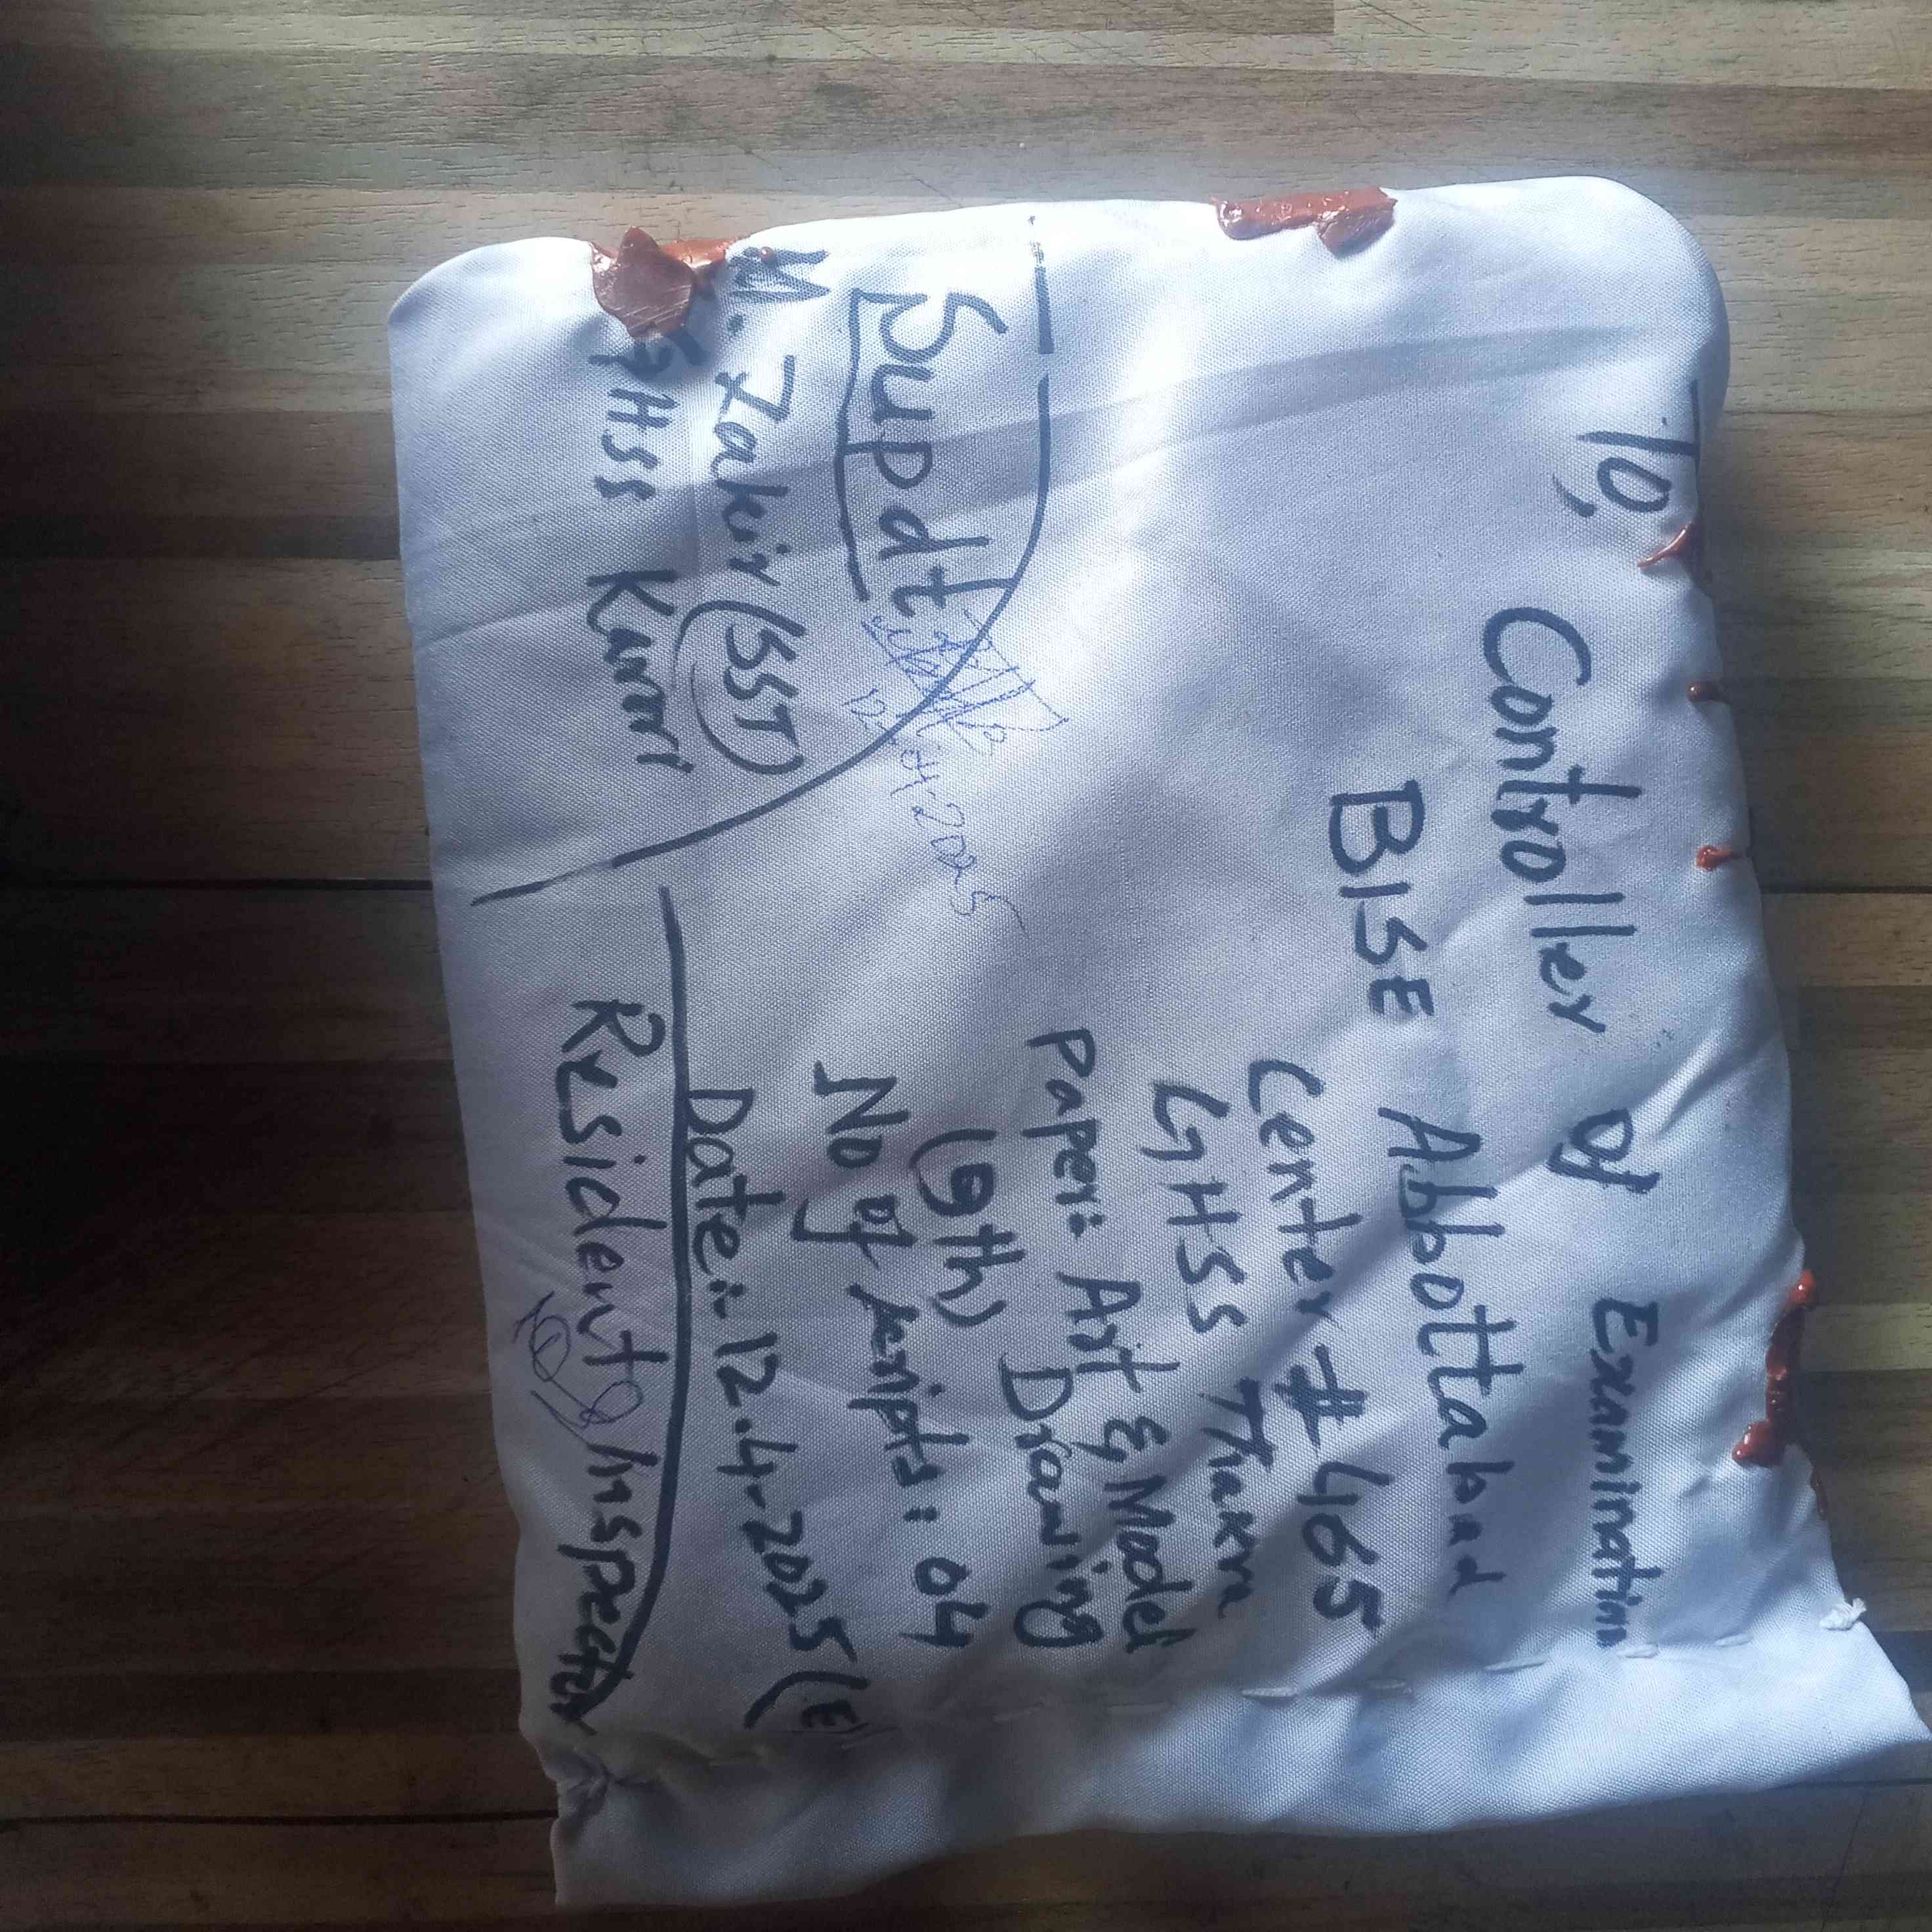 To,
Controller of Examination
BISE Abbottabad
Center # 465
GHSS Thakra
Paper: Art & Model
Drawing
(9th)
No of scripts: 04
Date:. 12.4.2025 (E)
Supdt
12-04-2025
M. Zakir (SST)
GHSS Karori
Resident Inspector